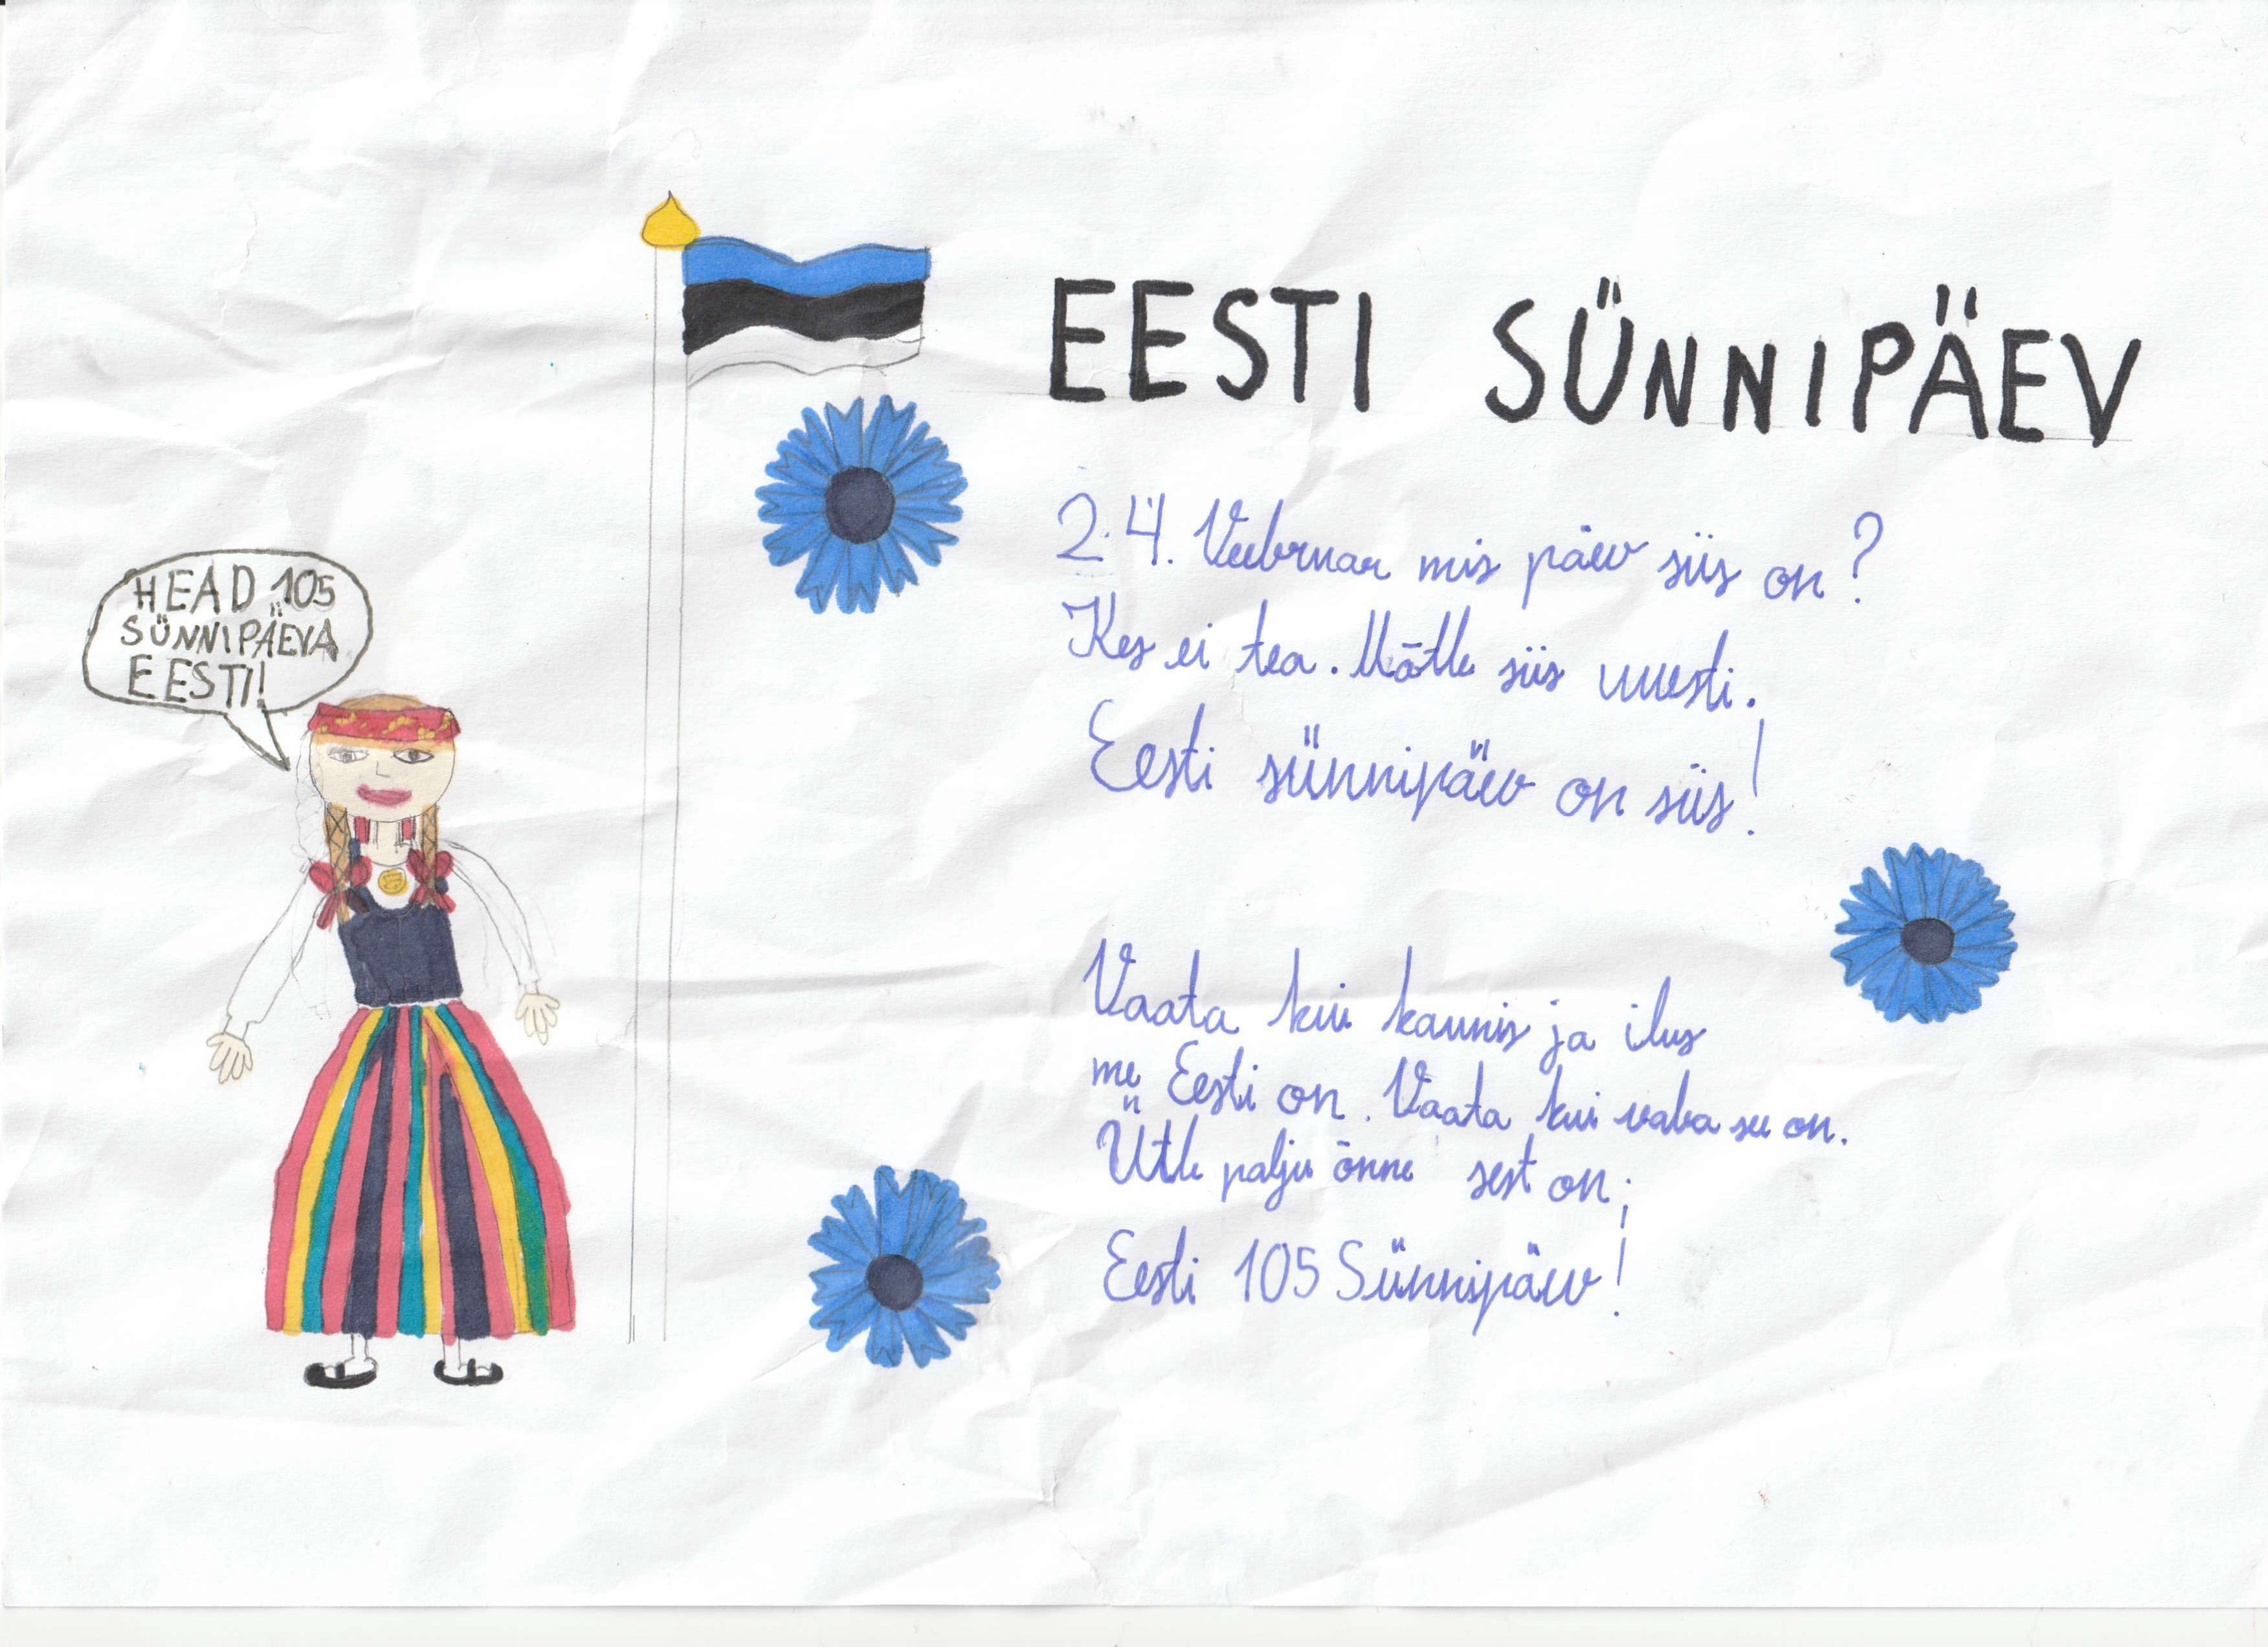 EESTI SÜNNIPÄEV
24. Veebruar mis päev siis on?
Kes ei tea. Mõtle siis uuesti.
Eesti sünnipäev on siis!
Vaata kui kaunis ja ilus
me Eesti on. Vaata kui vaba see on.
Ütle palju õnne sest on;
Eesti 105 Sünnipäev!
HEAD 105
SÜNNIPÄEVA
EESTI!